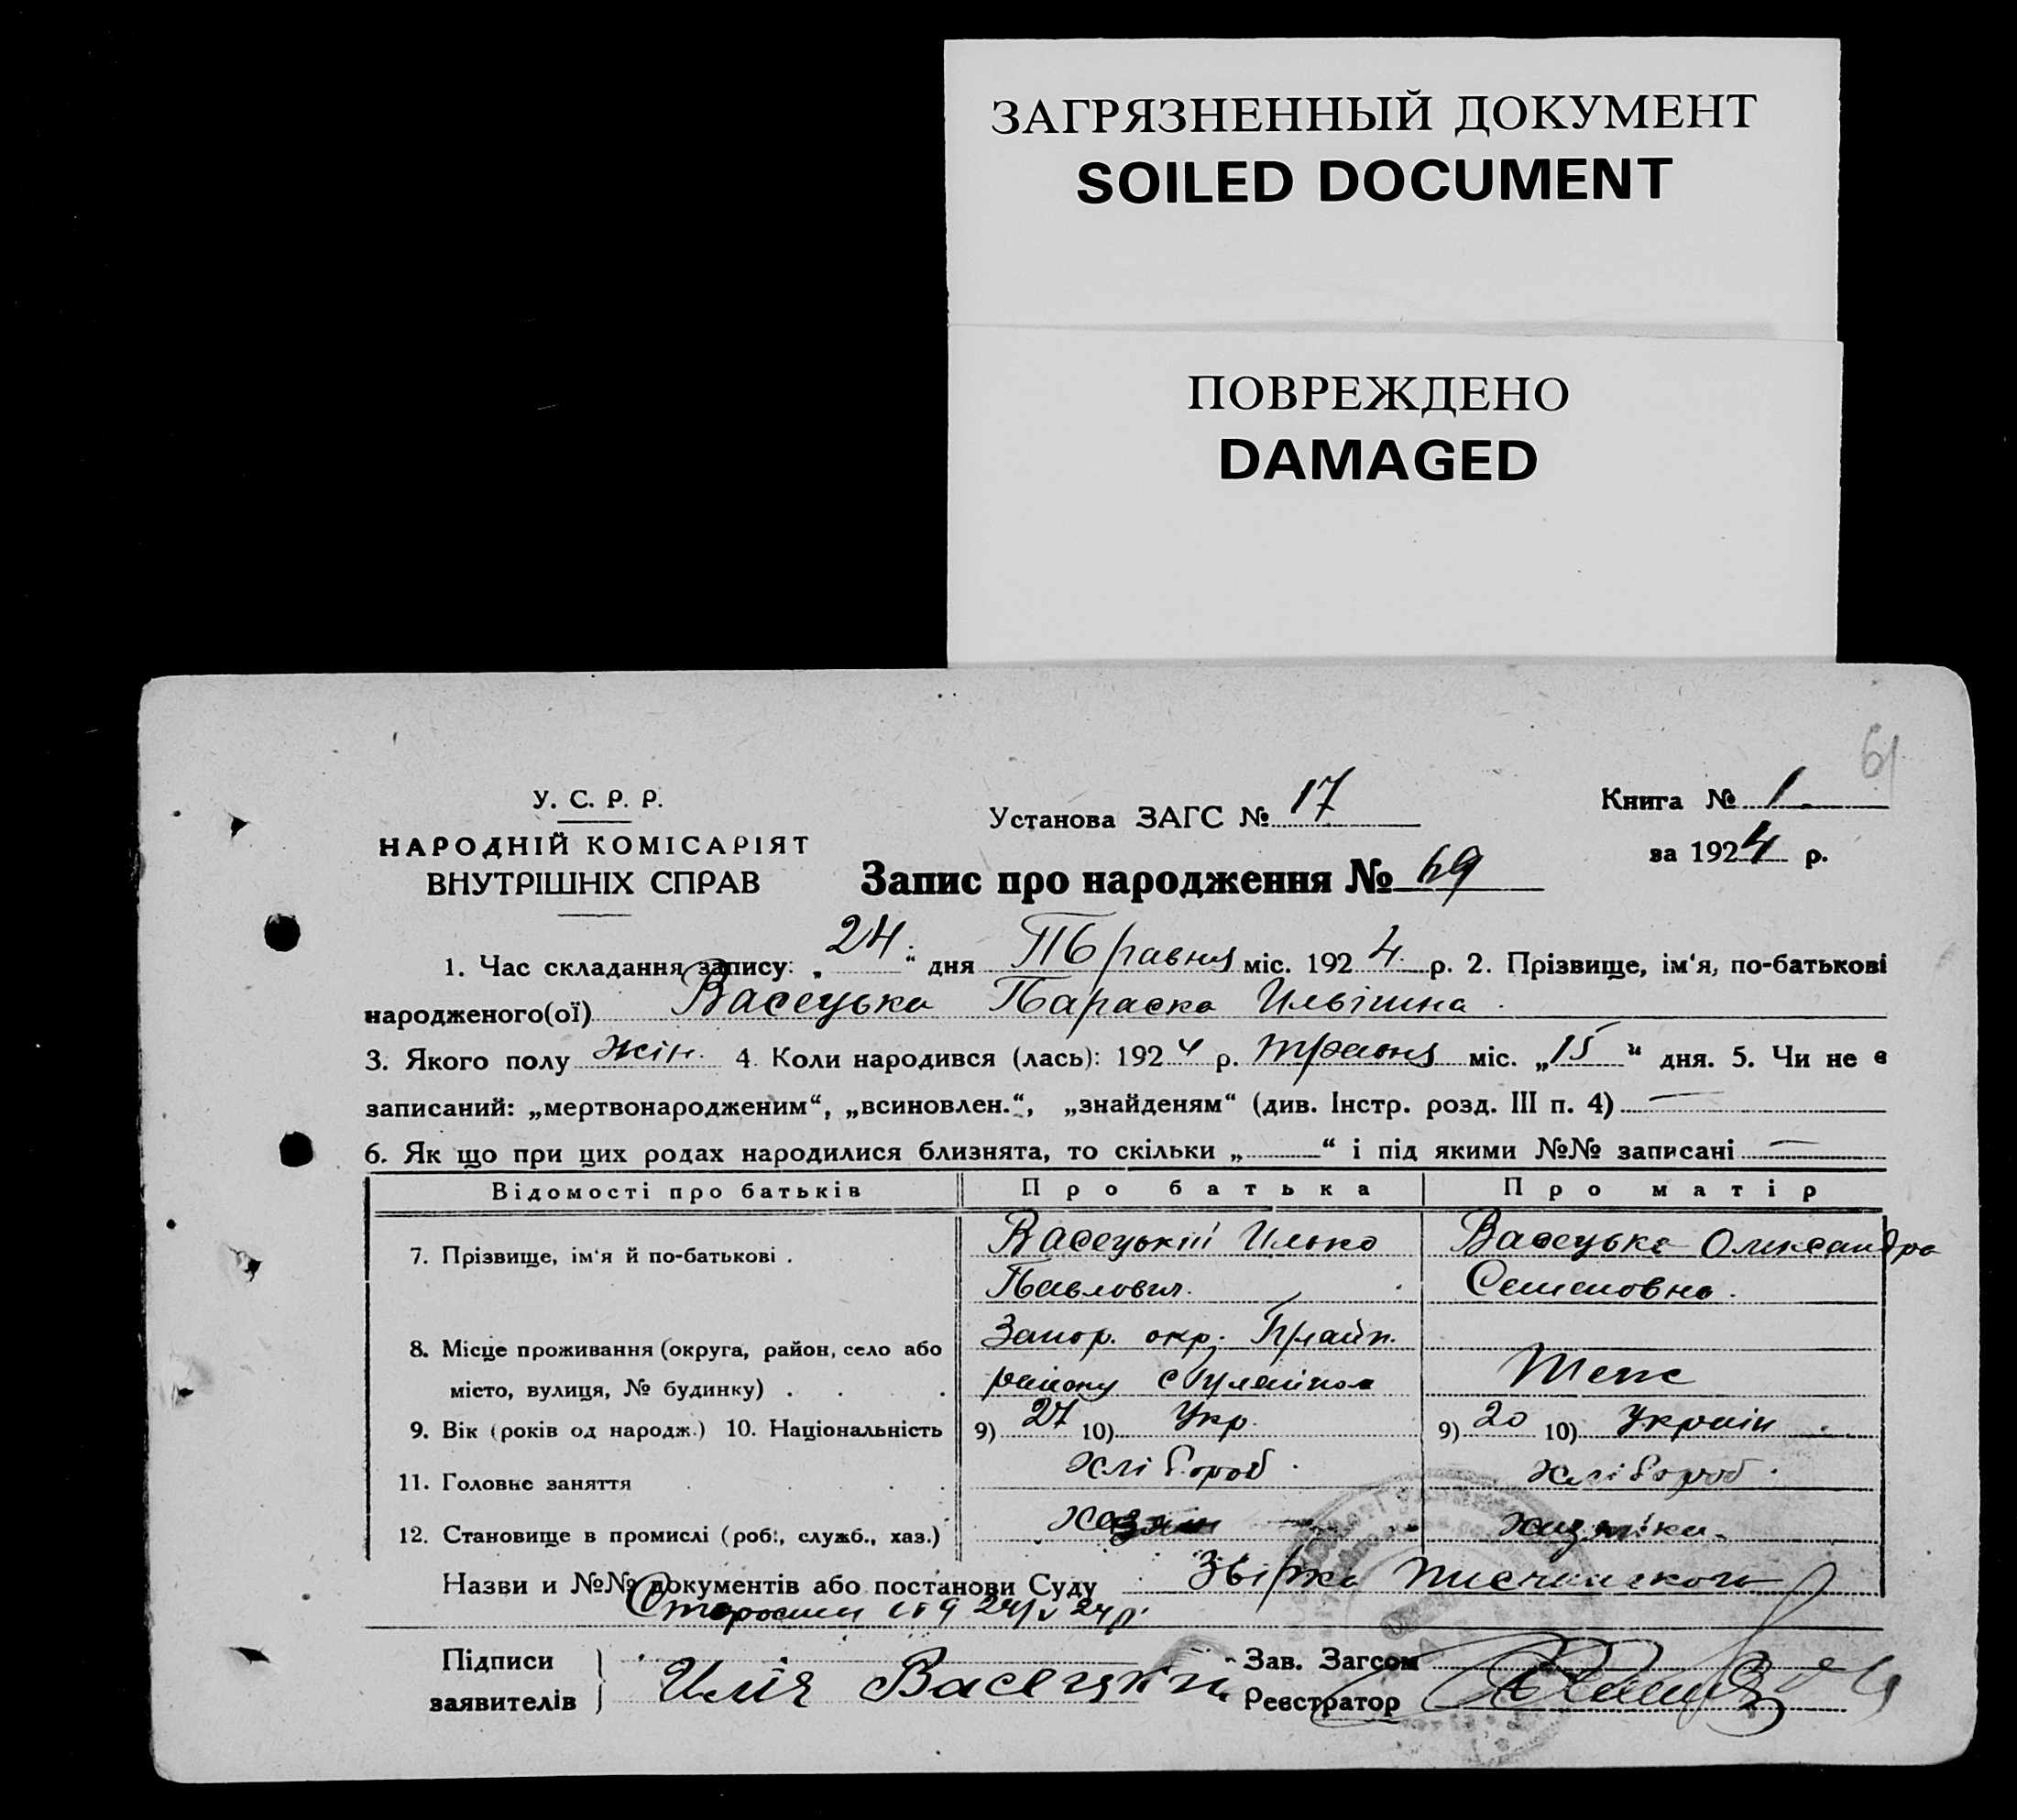 ЗАГРЯЗНЕННЫЙ ДОКУМЕНТ
SOILED DOCUMENT
ПОВРЕЖДЕНО
DAMAGED
61
У. С. Р. Р.
НАРОДНІЙ КОМІСАРІЯТ
ВНУТРІШНІХ СПРАВ
Установа ЗАГС № 17
Книга № 1.
за 1924 р.
Запис про народження № 69
1. Час складання запису: „24“ дня Травня міс. 1924 р. 2. Прізвище, ім‘я, по-батькові
народженого(ої) Васецька Параска Ильівна
3. Якого полу жін. 4. Коли народився (лась): 1924 р. травня міс. „15“ дня. 5. Чи не є
записаний: „мертвонародженим“, „всиновлен.“, „знайденям“ (див. Інстр. розд. III п. 4) —
6. Як що при цих родах народилися близнята, то скільки „ “ і під якими №№ записані —
Відомості про батьків Про батька Про матір
7. Прізвище, ім‘я й по-батькові . Васецький Илько Васецька Олександра
Павлович. Семеновна.
8. Місце проживання (округа, район, село або Запор. окр.
місто, вулиця, № будинку) . . . району Теж
9. Вік (років од народж.) 10. Національність 9) 27 10) Укр. 9) 20 10) Україн
11. Головне заняття Хлібороб. хлібороб.
12. Становище в промислі (роб., служб., хаз.) Хазяин хазяйка
Назви и №№ документів або постанови Суду
24/V 24 р.
Підписи заявителів Илія Васецкій
Зав. Загсом
Реєстратор